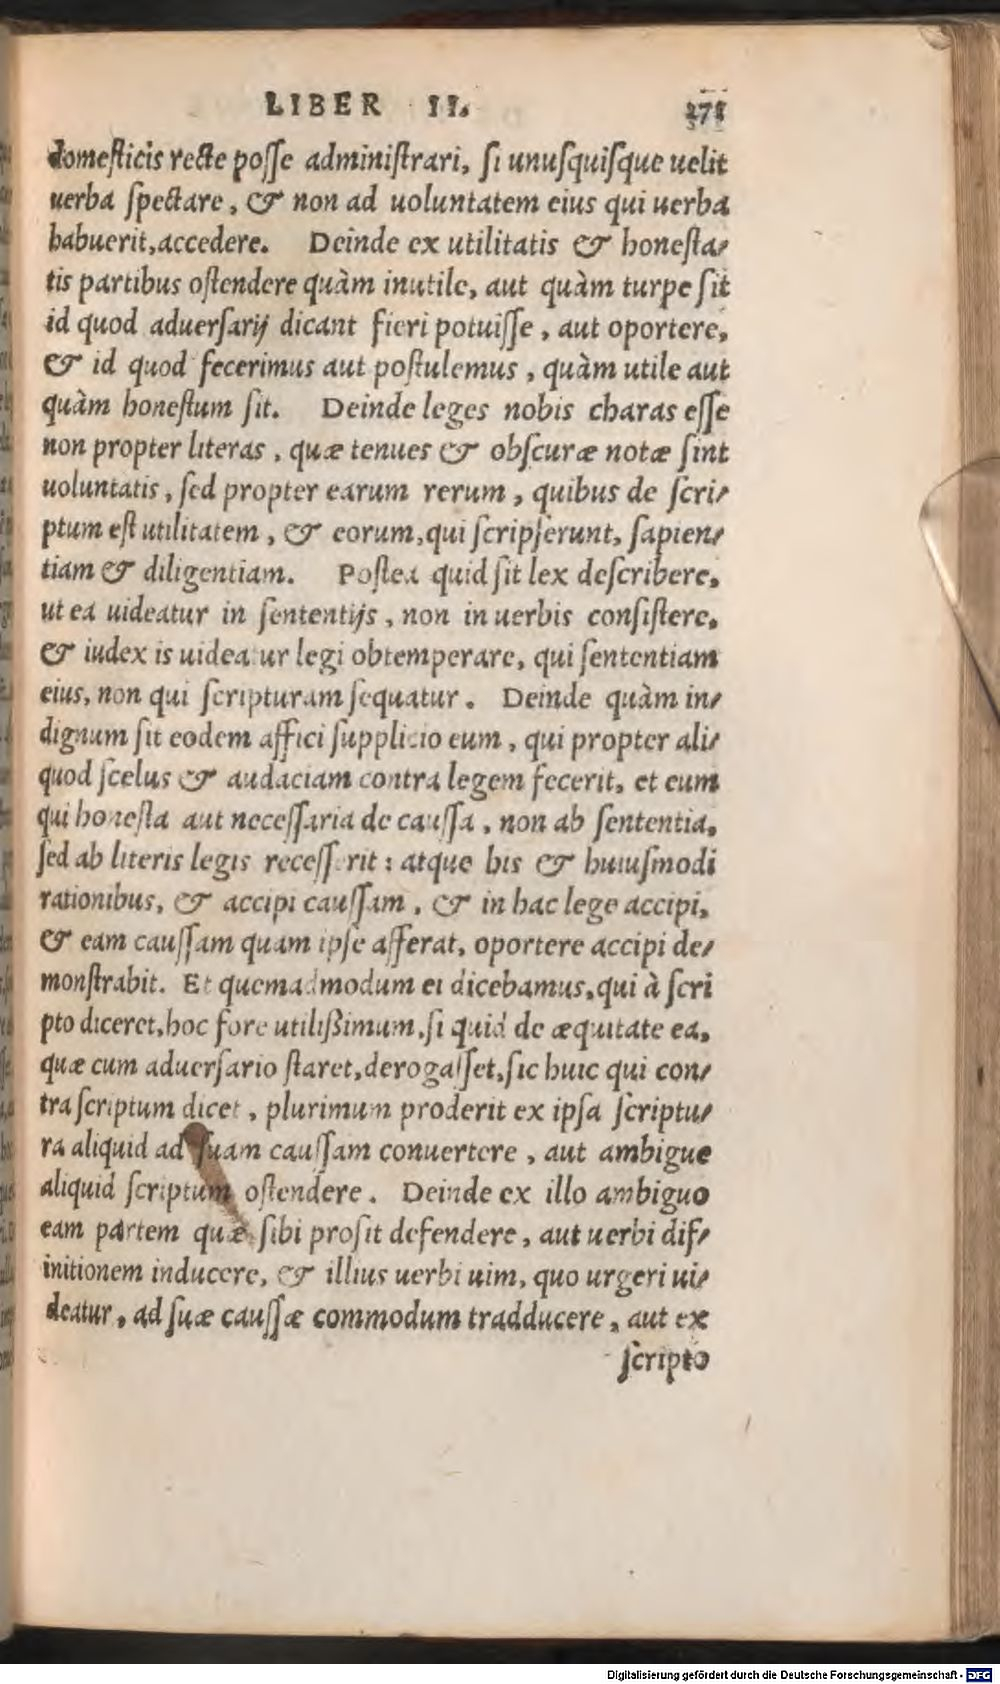 LIBER II. 271
domesticis recte posse administrari, si unusquisque uelit
uerba spectare, & non ad uoluntatem eius qui uerba
habuerit, accedere. Deinde ex utilitatis & honesta-
tis partibus ostendere quàm inutile, aut quàm turpe sit
id quod aduersarij dicant fieri potuisse, aut oportere,
& id quod fecerimus aut postulemus, quàm utile aut
quàm honestum sit. Deinde leges nobis charas esse
non propter literas, quæ tenues & obscuræ notæ sint
uoluntatis, sed propter earum rerum, quibus de scri-
ptum est utilitatem, & eorum, qui scripserunt, sapien-
tiam & diligentiam. Postea quid sit lex describere,
ut ea uideatur in sententijs, non in uerbis consistere,
& iudex is uideatur legi obtemperare, qui sententiam
eius, non qui scripturam sequatur. Deinde quàm in-
dignum sit eodem affici supplicio eum, qui propter ali-
quod scelus & audaciam contra legem fecerit, et eum
qui honesta aut necessaria de caussa, non ab sententia,
sed ab literis legis recesserit: atque his & huiusmodi
rationibus, & accipi caussam, & in hac lege accipi,
& eam caussam quam ipse afferat, oportere accipi de-
monstrabit. Et quemadmodum ei dicebamus, qui à scri
pto diceret, hoc fore utilißimum, si quid de æquitate ea,
quæ cum aduersario staret, derogasset, sic huic qui con-
tra scriptum dicet, plurimum proderit ex ipsa scriptu-
ra aliquid ad suam caussam conuertere, aut ambigue
aliquid scriptum ostendere. Deinde ex illo ambiguo
eam partem quæ sibi prosit defendere, aut uerbi dif-
initionem inducere, & illius uerbi uim, quo urgeri ui-
deatur, ad suæ caussæ commodum tradducere, aut ex
scripto
Digitalisierung gefördert durch die Deutsche Forschungsgemeinschaft - DFG